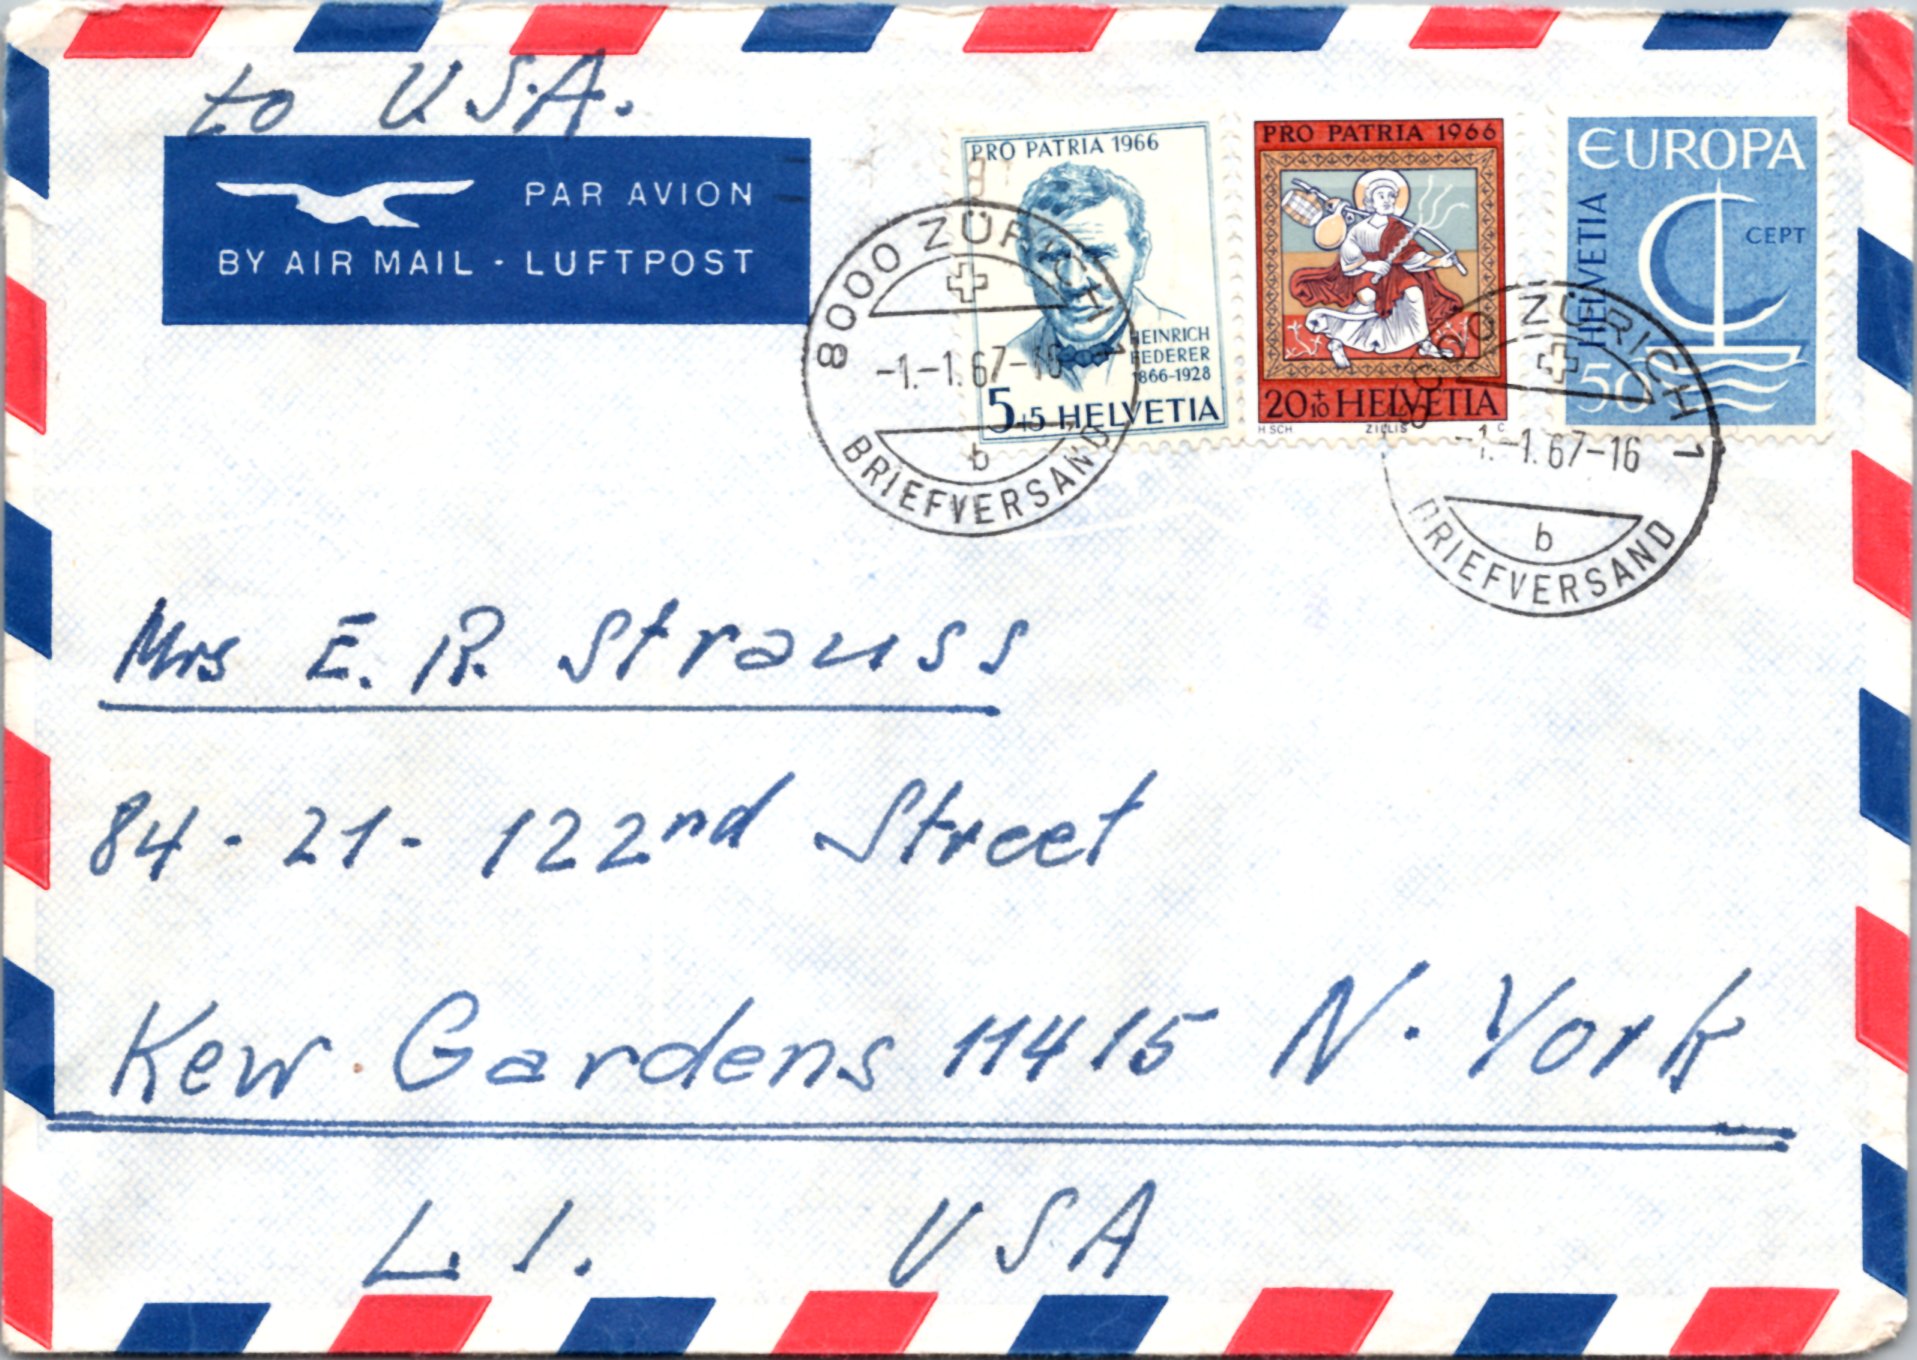 to U.S.A.
PAR AVION
BY AIR MAIL - LUFTPOST
PRO PATRIA 1966
HEINRICH
FEDERER
1866-1928
5+5 HELVETIA
PRO PATRIA 1966
20+10 HELVETIA
H SCH ZILLIS C
EUROPA
HELVETIA
CEPT
50
8000 ZÜRICH 1
-1.-1.67-16
b
BRIEFVERSAND
8000 ZÜRICH 1
-1.-1.67-16
b
BRIEFVERSAND
Mrs E. R. Strauss
84 - 21 - 122nd Street
Kew Gardens 11415 N. York
L. I. USA